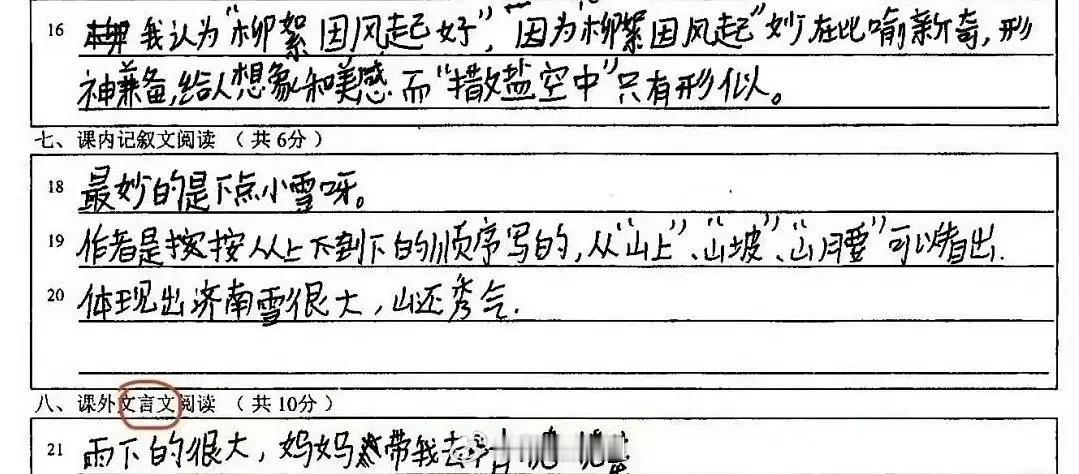 16 我认为“柳絮因风起好”,因为“柳絮因风起”妙在比喻新奇,形
神兼备,给人想象和美感而“撒盐空中”只有形似。
七、课内记叙文阅读 (共6分)
18 最妙的是下点小雪呀。
19 作者是按从上到下的顺序写的,从“山上”、“山坡”、“山腰”可以看出.
20 体现出济南雪很大,山还秀气.
八、课外文言文阅读 (共10分)
21 雨下的很大,妈妈带我去